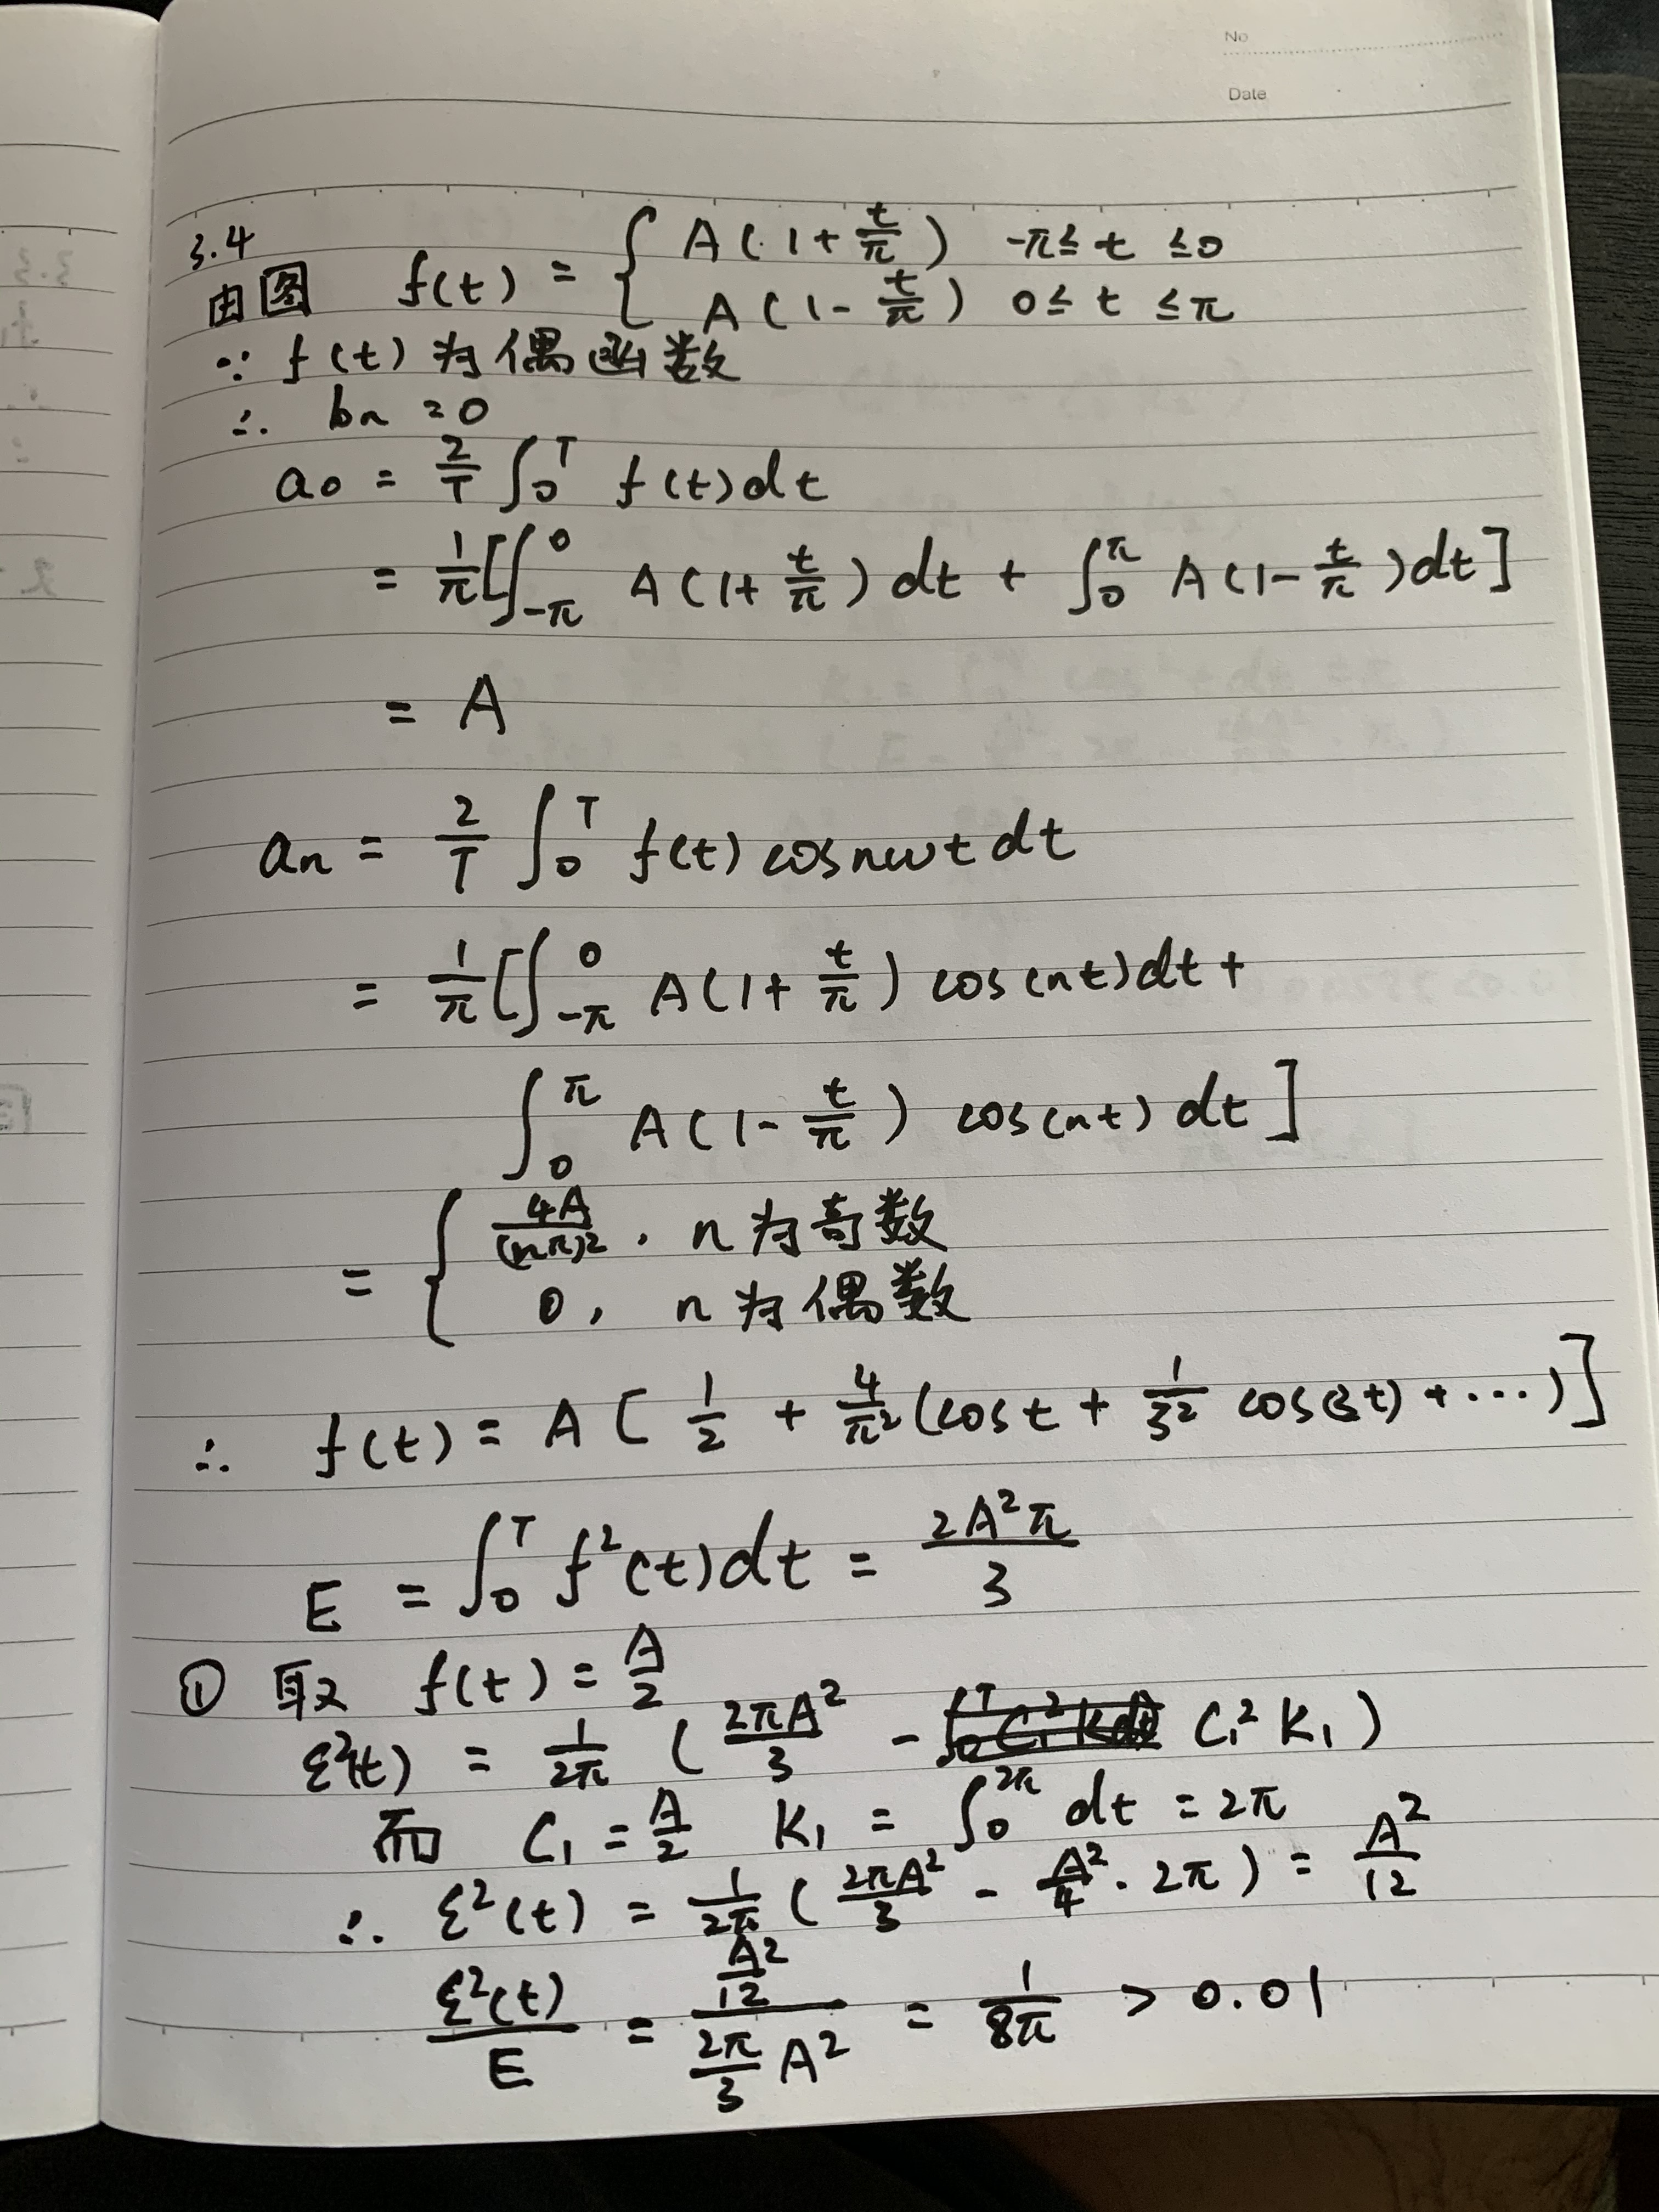 No
Date
3.4
由图 f(t) = { A(1+t/π) -π≤t≤0
A(1-t/π) 0≤t≤π
∵ f(t)为偶函数
∴ bn=0
a0 = 2/T ∫_0^T f(t)dt
= 1/π[∫_{-π}^0 A(1+t/π)dt + ∫_0^π A(1-t/π)dt]
= A
an = 2/T ∫_0^T f(t)cosnωtdt
= 1/π[∫_{-π}^0 A(1+t/π)cos(nt)dt+
∫_0^π A(1-t/π)cos(nt)dt]
= { 4A/(nπ)^2, n为奇数
0, n为偶数
∴ f(t) = A[1/2 + 4/π^2(cost + 1/3^2 cos(3t) + ···)]
E = ∫_0^T f^2(t)dt = 2A^2π/3
① 取 f(t) = A/2
ε^2(t) = 1/2π (2πA^2/3 - C_1^2 K_1)
而 C_1 = A/2 K_1 = ∫_0^{2π} dt = 2π
∴ ε^2(t) = 1/2π (2πA^2/3 - A^2/4 · 2π) = A^2/12
ε^2(t)/E = (A^2/12)/(2π/3 A^2) = 1/8π > 0.01